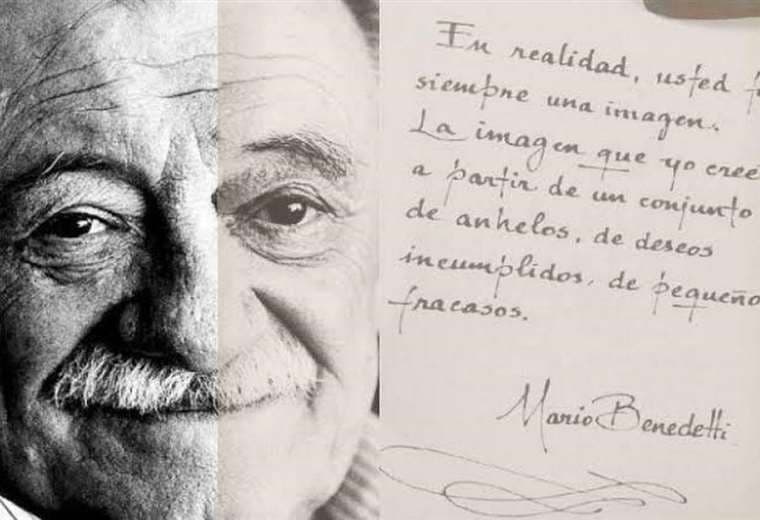 En realidad, usted
siempre una imagen.
La imagen que yo cree
a partir de un conjunto
de anhelos, de deseos
incumplidos, de pequeño
fracasos.
Mario Benedetti